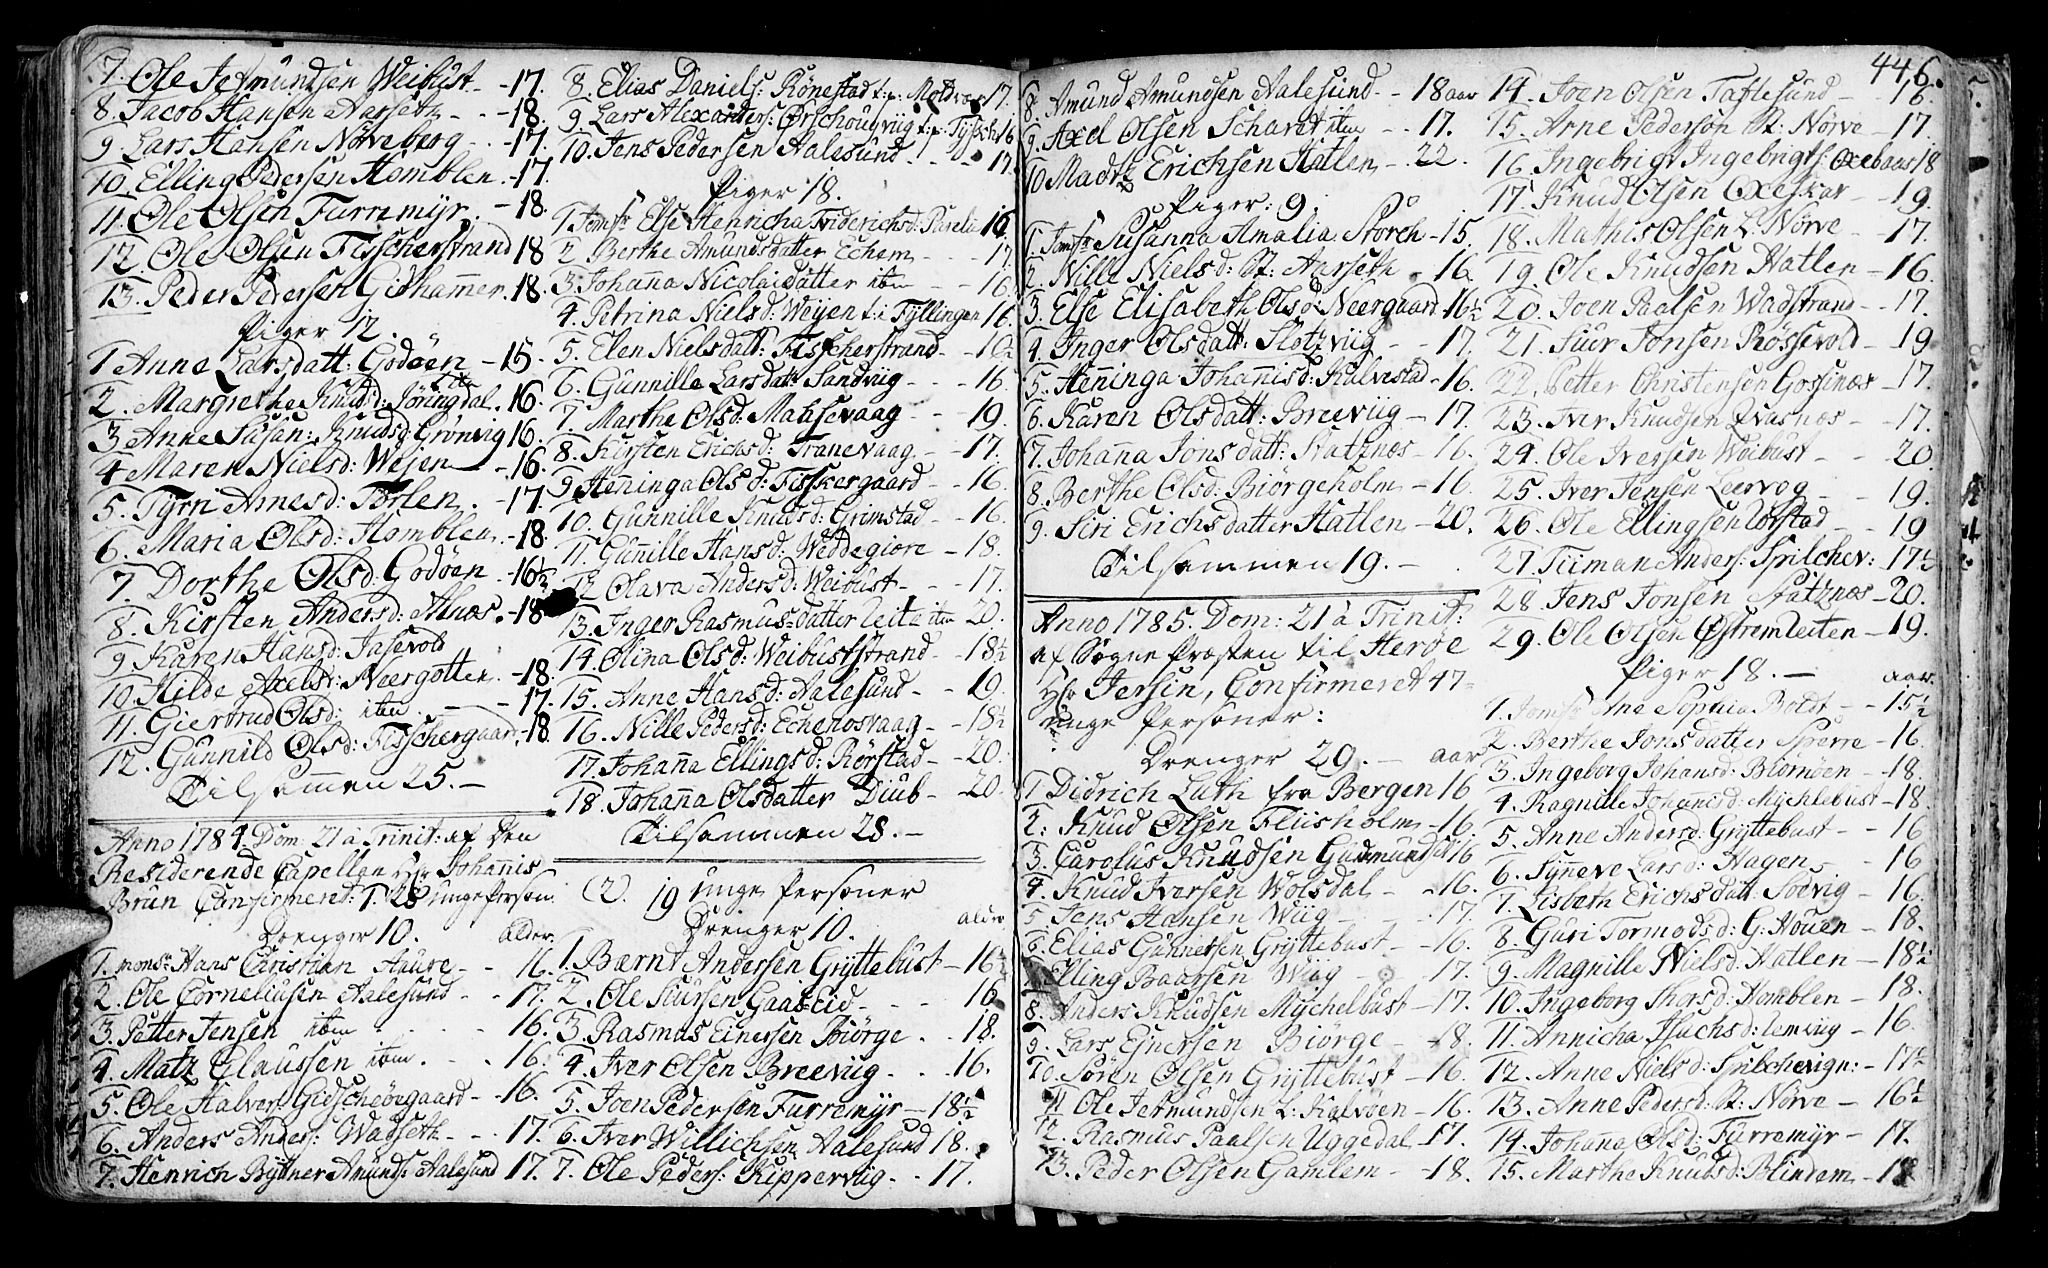 7. Ole Jetmundsen Weibust - 17.
8. Jacob Hansen Aarseth - 18.
9. Lars Hansen Nørveberg - 17.
10. Elling Pedersen Homblen - 17.
11. Ole Olsen Furremyr - 18.
12. Ole Olsen Fisscherstrand 18
13. Peder Pedersen Gidhammer. 18.
Piger 12.
1 Anne Larsdatt: Godøen - 15.
2. Margrethe Knudsd: Jøringdal. 16.
3 Anne Susan: Knudsd: Grönvig 16.
4 Maren Nielsd: Wejen - 16.
5. Tyrri Arnesd: Torlen - 17.
6. Maria Olsd: Homblen - 18.
7. Dorthe Olsd: Godöen - 16½
8. Kirsten Andersd: Alnæs - 18
9 Karen Hansd: Jasevold
10 Hilde Axelsd: Neergotten - 18.
11. Giertrud Olsd: item - 17.
12. Gunnild Olsd: Fisschergaard, 18.
Tilsammen 25. -
Anno 1784. Dom: 21 à Trinit: af Den
Residerende Capellan Hr Johannis
Brun Confirmeret: 1. 28 unge Person.
Drenger 10. alder.
1. mons: Hans Christian Aure - 16.
2. Ole Corneliusen Aalesund - 17.
3. Petter Jensen item - 16.
4. Matz Claussen item - 16.
5. Ole Halvers: Gidschöegaard - 16.
6. Anders Anders: Wadseth - 17.
7. Henrich Byttner Amunds: Aalesund 17.
8. Elias Daniels: Rönestad t: p: Moldvær 17.
9 Lars Alexanders: Ørschougviig
10. Jens Pedersen Aalesund - 17.
Piger 18.
1 Jomfr Else Henricha Friderichsd: 16
2 Berthe Amundsdatter Echem - 17.
3. Johanna Nicolaidatter item - 16
4. Petrina Nielsd: Weyen t: i Tyllingen 16.
5. Elen Nielsdatt: Fisscherstrand - 16½
6. Gunnille Larsdatt: Sandviig - 16.
7. Marthe Olsd: Mahsevaag - 19.
8. Kirsten Erichsd: Tranevaag - 17.
9 Henninga Olsd: Fiskergaard - 16.
10. Gunnille Knudsd: Grimstad - 16.
11. Gunnille Hansd: Weddegiære - 18.
12 Olava Andersd: Weibust - 17.
13. Inger Rasmusdatter Leite item 20.
14. Olina Olsd: Weibuststrand - 18½
15. Anne Hansd: Aalesund - 19.
16. Nille Pedersd: Echenosvaag - 18½
17. Johanna Ellingsd: Rörstad - 20.
18. Johanna Olsdatter Diub - 20.
Tilsammen 28. -
(2. 19 unge Personer
Drenger 10. alder
1. Bærnt Andersen Gryttebust - 16½
2. Ole Siursen Gaaseid - 16
3. Rasmus Einersen Biörge - 18.
4. Iver Olsen Breeviig - 16.
5. Joen Pedersen Furremyr - 18½
6. Iver Willichsen Aalesund 18.
7. Ole Peders: Kipperviig - 17.
446.
8. Amund Amundsen Aalesund - 18 aar
9. Axel Olsen Schavet item - 17.
10 Madtz Erichsen Hatlen - 22.
Piger: 9.
1. Jomfr Susanna Amalia Storch - 15.
2. Nille Nielsd: St: Aarseth - 16
3. Else Elisabeth Olsd: Neergaard - 16½
4. Inger Olsdatt: Slotzviig - 17.
5. Henninga Johannisd: Kalvestad - 16.
6. Karen Olsdatt: Breeviig - 17.
7. Johanna Jonsdatt: Statznæs - 16.
8. Berthe Olsd: Biörgeholm - 16.
9. Siri Erichsdatter Hatlen - 20.
Tilsammen 19. -
Anno 1785. Dom: 21 à Trinit:
af Sogne Præsten til Heröe
Hr Jersin, Confirmeret 47
unge Personer:
Drenger 29. - aar
1 Didrich Luth fra Bergen 16
2: Knud Olsen Fliisholm - 16.
3. Carolus Knudsen Gudmundset 16
4. Knud Iversen Wolsdal - 16.
5. Jens Hansen Wiig - 17.
6. Elias Gunnersen Gryttebust - 16.
Elling Baarsen Wiig - 17.
8. Anders Knudsen Mychelbust - 17.
9. Lars Enersen Biörge - 18.
10. Sören Olsen Gryttebust - 16.
11 Ole Jetmundsen L: Kalvöen - 16.
12. Rasmus Paalsen Uggedal - 17.
13. Peder Olsen Gamlem - 18.
14. Joen Olsen Taftesund - 16.
15. Arne Pedersøn St: Nörve - 17.
16. Ingebrigt Ingebrigts: Oxebaas 18
17. Knud Olsen Oxeskar - 19.
18. Mathis Olsen L. Nörve - 17.
19. Ole Knudsen Hatlen - 16.
20. Joen Paalsen Wadstrand - 17.
21. Siur Jonsen Røssevold - 19
22. Petter Christensen Gossnæs - 17.
23. Iver Knudsen Qvasnæs - 17.
24. Ole Iversen Weibust - 20.
25. Iver Jensen Leervog - 19.
26. Ole Ellingsen Torstad - 19
27. Tiiman Anders: Spilchev: 17½
28. Jens Jonsen Statznæs - 20.
29. Ole Olsen Østremleiten - 19.
Piger 18. - aar.
1. Jomfr Ane Sophia Boldt - 15½
2. Berthe Jonsdatter Sperre - 16.
3. Ingeborg Johansd: Biörnöen - 18.
4. Ragnille Johannisd: Mychlebust - 18.
5. Anne Andersd: Gryttebust - 16
6. Synneve Larsd: Hagen - 16
7. Lisbeth Erichsdatt: Solvig - 16.
8. Guri Tormodsd: G: Houen - 18.
9. Magnille Nielsd: Hatlen - 18½
10. Ingeborg Thorsd: Homblen - 18.
11. Annicha Isachsd: Lemviig - 16.
12. Anne Nielsd: Spilchevign: - 17½
13. Anne Pedersd: St: Nørve - 16½
14. Johana Olsd: Furremyr - 17.
15. Marthe Knudsd: Blindem - 18